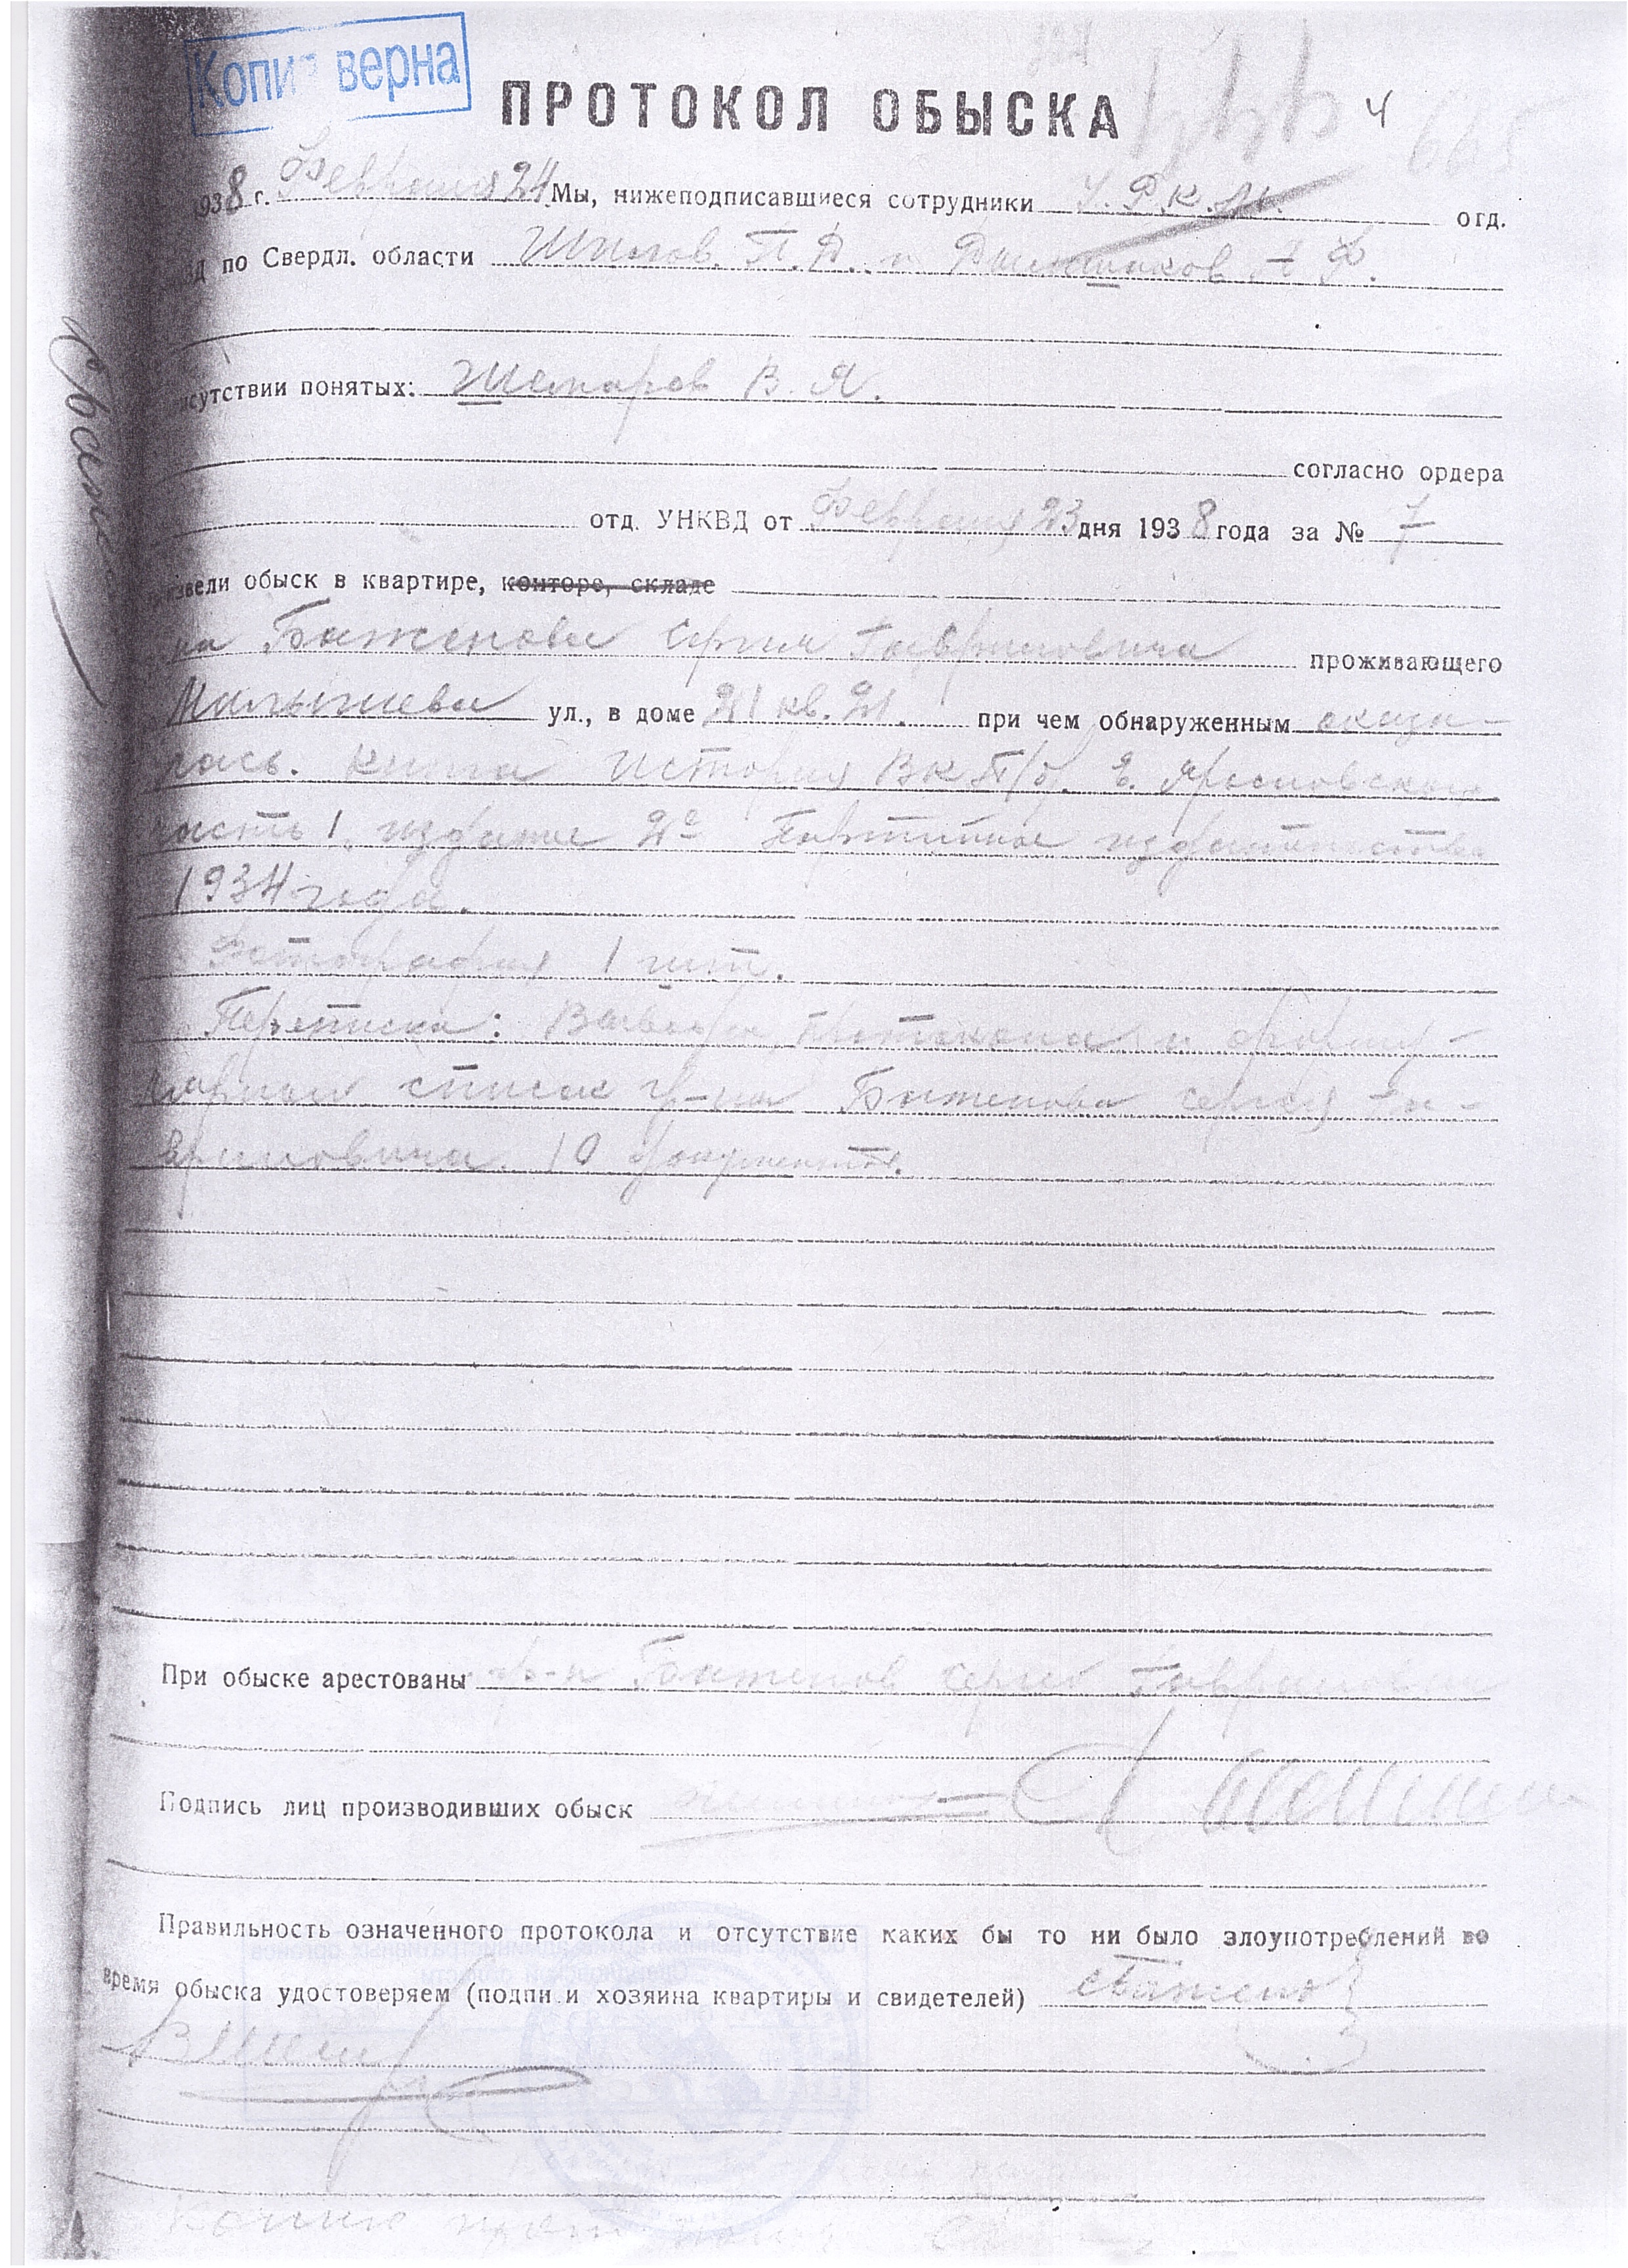 Копия верна
ПРОТОКОЛ ОБЫСКА
4
665
1938 г. Февраля 24 Мы, нижеподписавшиеся сотрудники У.Р.К.М. отд.
по Свердл. области Шилов П.Д. и
понятых: Шемаров В. Я.
согласно ордера
отд. УНКВД от Февраля 23 дня 1938 года за № 7
обыск в квартире, конторе, складе
на Баженова Сергия Гавриловича проживающего
Малышева ул., в доме 21 кв. 21. при чем обнаруженным оказа-
лась. книга История ВКП/б/. Е. Ярославского
часть 1. издание 2е Партийное издательство
1934 года.
Фотография 1 шт.
Переписка: протокола и форму-
лярный список гр-на Баженова Сергея Га-
вриловича. 10 документов.
При обыске арестованы гр-н Баженов Сергей Гаврилович
Подпись лиц производивших обыск
Правильность означенного протокола и отсутствие каких бы то ни было злоупотреблений во
время обыска удостоверяем (подписи хозяина квартиры и свидетелей) сБаженов
Копию